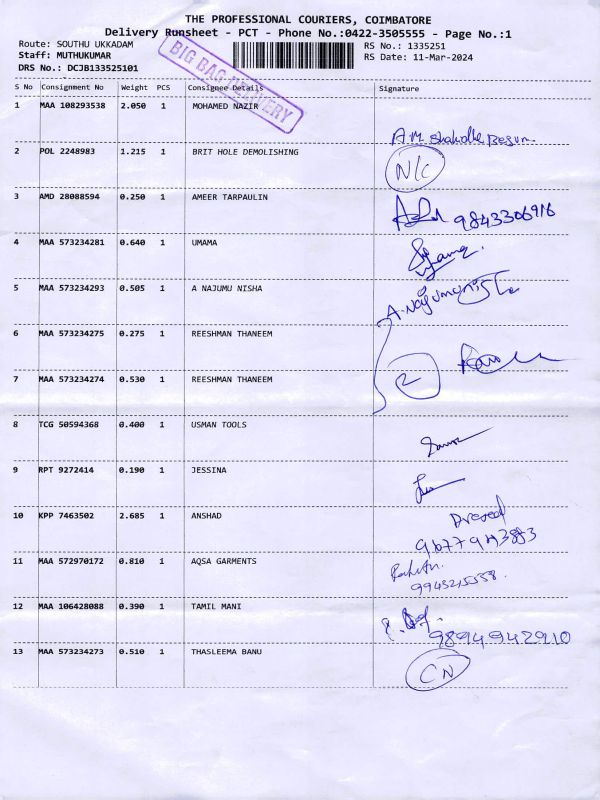 THE PROFESSIONAL COURIERS, COIMBATORE
Delivery Runsheet - PCT - Phone No.:0422-3505555 - Page No.:1
Route: SOUTHU UKKADAM RS No.: 1335251
Staff: MUTHUKUMAR RS Date: 11-Mar-2024
DRS No.: DCJB133525101
BIG BAG DELIVERY
S No Consignment No Weight PCS Consignee Details Signature
1 MAA 108293538 2.050 1 MOHAMED NAZIR
2 POL 2248983 1.215 1 BRIT HOLE DEMOLISHING
N/C
3 AMD 28088594 0.250 1 AMEER TARPAULIN
9843306916
4 MAA 573234281 0.640 1 UMAMA
5 MAA 573234293 0.505 1 A NAJUMU NISHA
6 MAA 573234275 0.275 1 REESHMAN THANEEM
2
7 MAA 573234274 0.530 1 REESHMAN THANEEM
8 TCG 50594368 0.400 1 USMAN TOOLS
9 RPT 9272414 0.190 1 JESSINA
10 KPP 7463502 2.685 1 ANSHAD
11 MAA 572970172 0.810 1 AQSA GARMENTS
12 MAA 106428088 0.390 1 TAMIL MANI
9894942910
13 MAA 573234273 0.510 1 THASLEEMA BANU
CN